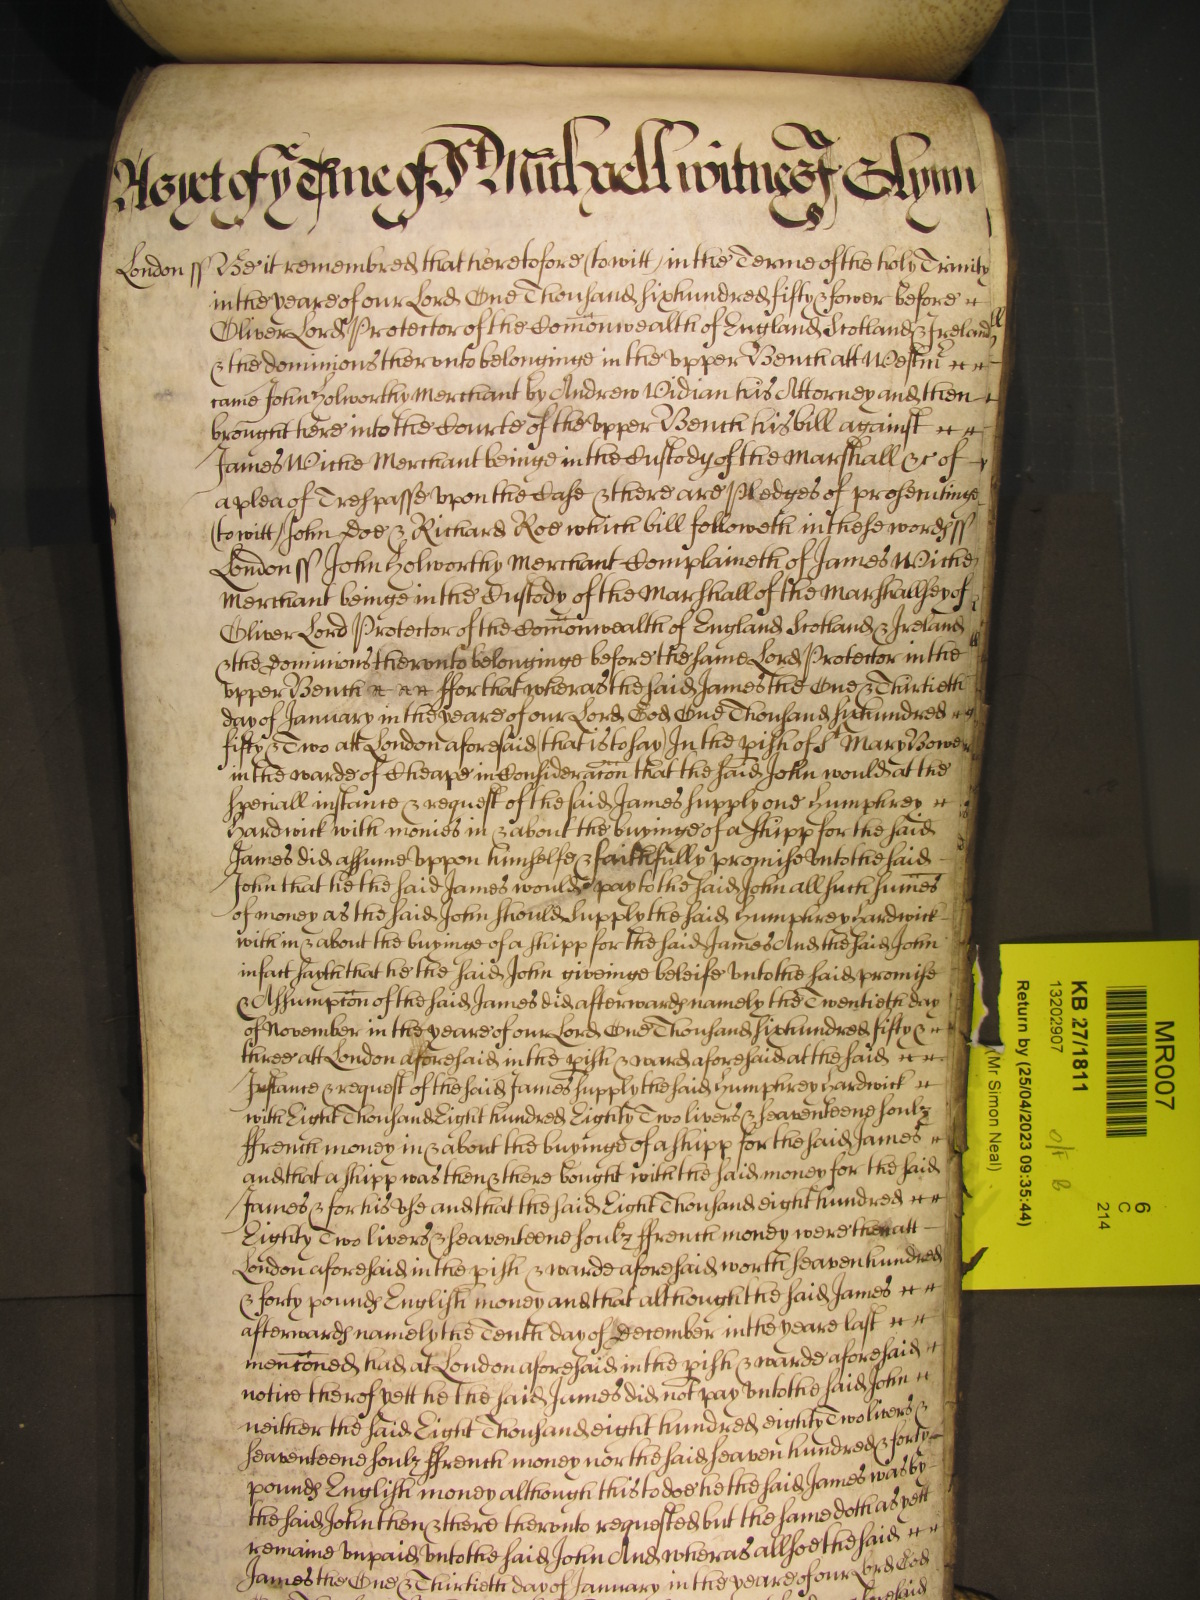 As yet of ye Tme of St Michaell witnes Glynn
London ss Be it remembred that heretofore (to witt) in the Terme of the holy Trinity
in the yeare of our Lord One Thousand sixhundred fifty & fower before
Oliver Lord Protector of the Comonwealth of England Scotland & Ireland
& the dominions therunto belonginge in the upper Bench att Westm
came John Holworthy Merchant by Andrew Vidian his Attorney and then
brought here into the Courte of the upper Bench his bill against
James Wiche Merchant beinge in the Custody of the Marshall &c of
a plea of Trespasse upon the Case & there are Pledges of prosecutinge
(to witt) John Doe & Richard Roe which bill followeth in these words ss
London ss John Holworthy Merchant Complaineth of James Wiche
Merchant beinge in the Custody of the Marshall of the Marshallsey of
Oliver Lord Protector of the Comonwealth of England Scotland & Ireland
& the dominions therunto belonginge before the same Lord Protector in the
upper Bench ffor that wheras the said James the One & Thirtieth
day of January in the yeare of our Lord God One Thousand sixhundred
fifty & Two att London aforesaid (that is to say) In the pish of St Mary Bowe
in the warde of Cheape in Consideracon that the said John would at the
speciall instance & request of the said James supply one Humphrey
Hardwick with monies in & about the buyinge of a shipp for the said
James did assume uppon himselfe & faithfully promise unto the said
John that he the said James would pay to the said John all such sumes
of money as the said John should supply the said Humphrey Hardwick
with in & about the buyinge of a shipp for the said James And the said John
in fact sayth that he the said John giveinge beleife unto the said promise
& Assumpcon of the said James did afterwards namely the Twentieth day
of November in the yeare of our Lord One Thousand sixhundred fifty &
three att London aforesaid in the pish & ward aforesaid at the said
Instance & request of the said James supply the said Humphrey Hardwick
with Eight Thousand Eight hundred Eighty Two livers & seaventeene soulz
ffrench money in & about the buyinge of a shipp for the said James
and that a shipp was then & there bought with the said money for the said
James & for his use and that the said Eight Thousand eight hundred
Eighty Two livers & seaventeene soulz ffrench money were then att
London aforesaid in the pish & warde aforesaid worth seaven hundred
& forty pounds English money and that although the said James
afterwards namely the Tenth day of December in the yeare last
menconed had at London aforesaid in the pish & warde aforesaid
notice therof yett he the said James did not pay unto the said John
neither the said Eight Thousand eight hundred eighty Two livers &
seaventeene soulz ffrench money nor the said seaven hundred & forty
pounds English money although this to doe he the said James was by
the said John then & there therunto requested but the same doth as yett
remaine unpaid unto the said John And wheras allsoe the said
James the One & Thirtieth day of January in the yeare of our Lord God
MR007
KB 27/1811
13202907
Return by (25/04/2023 09:35:44)
(Mr Simon Neal)
6
C
214